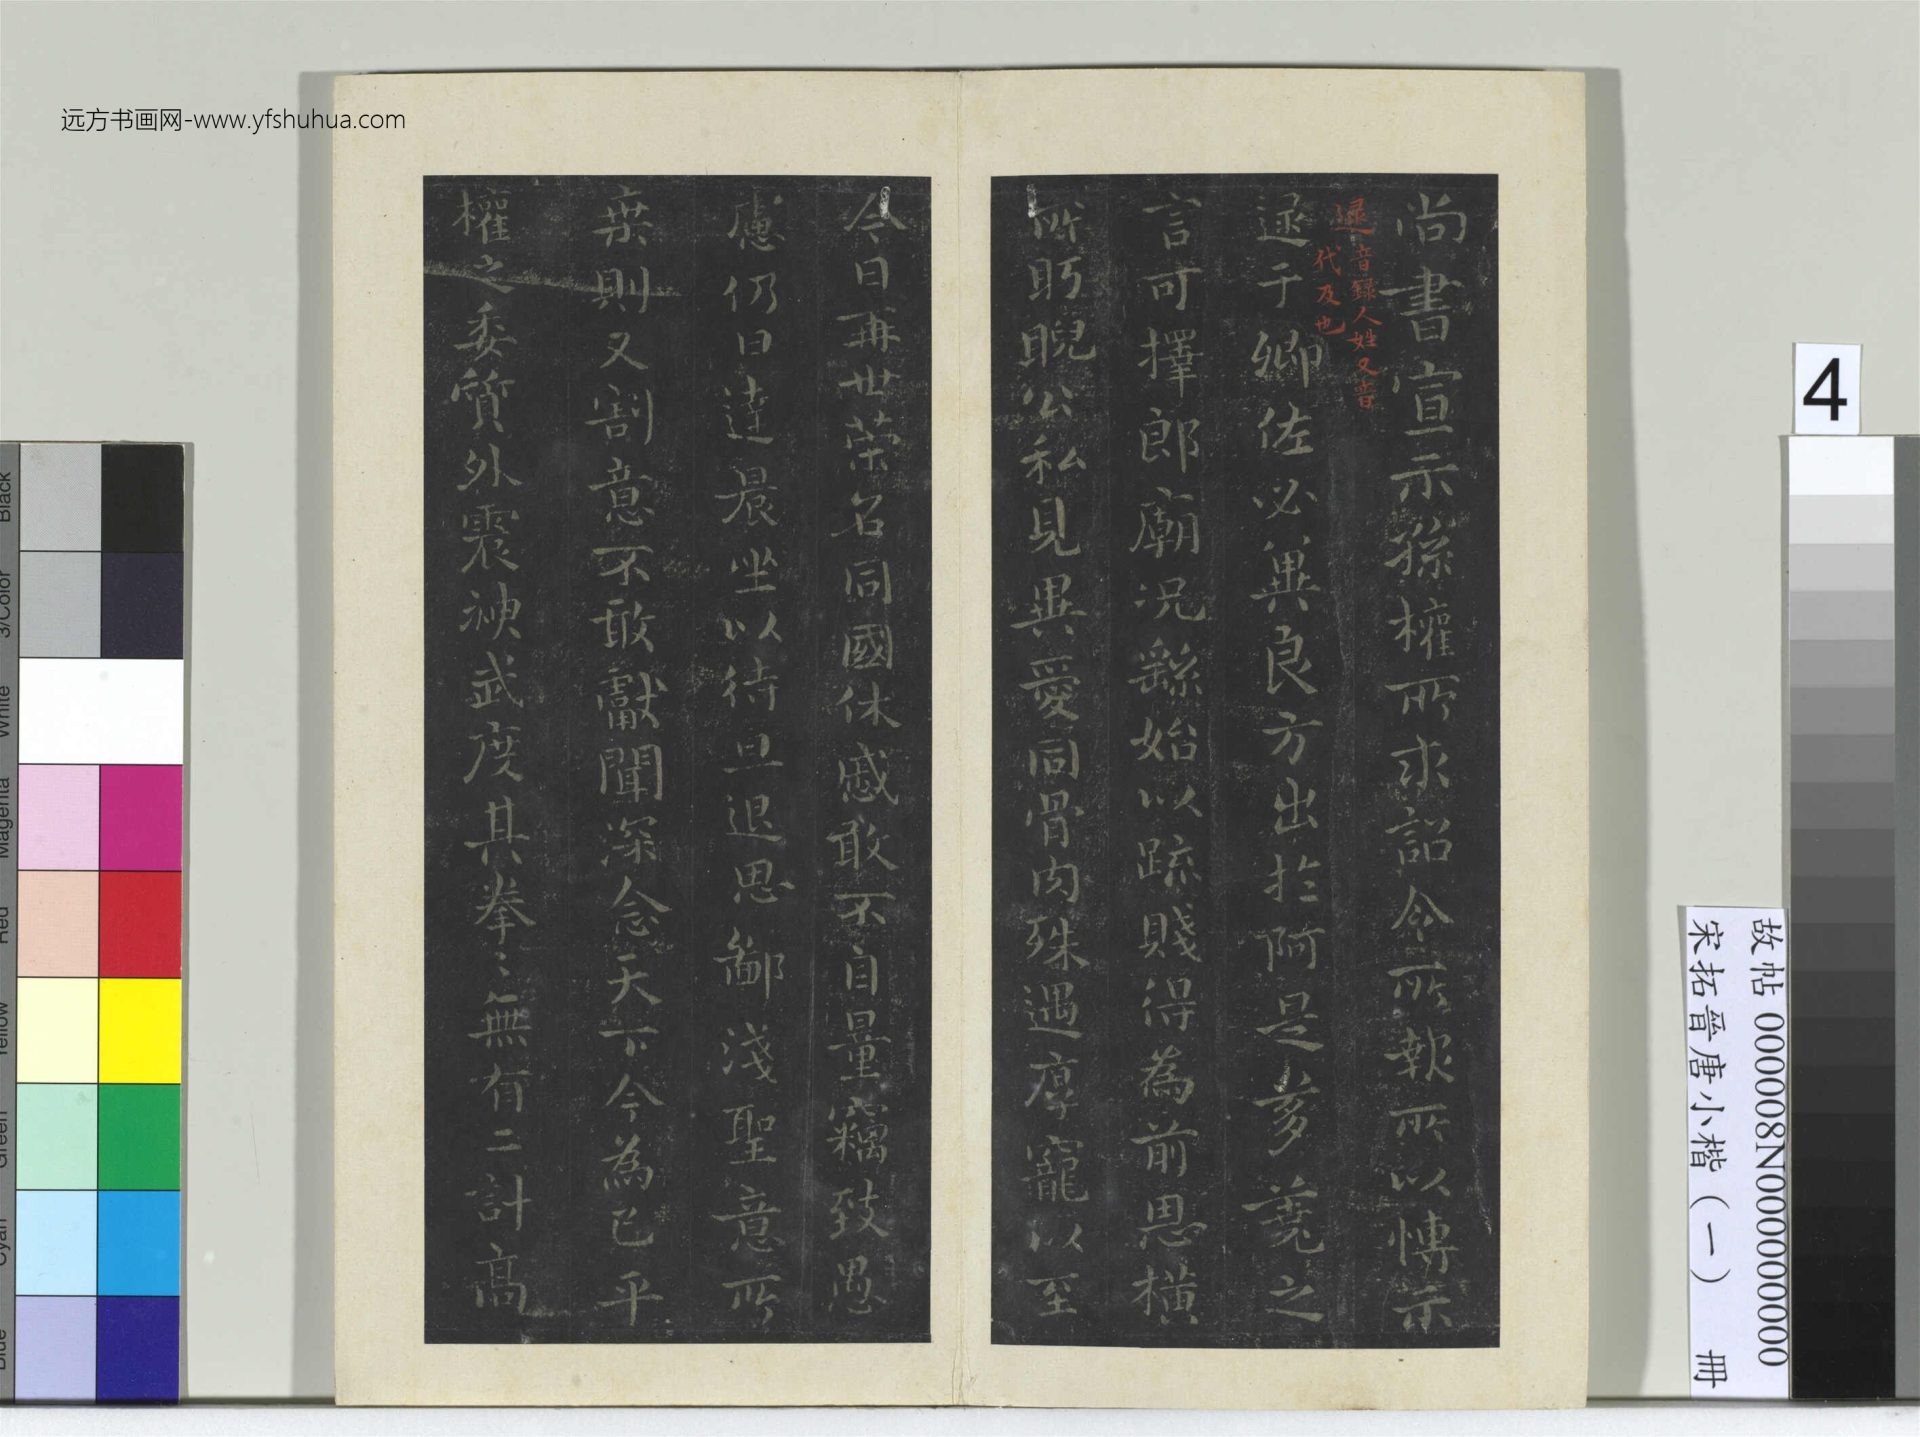 远方书画网-www.yfshuhua.com
尚書宣示孫權所求詔令所報所以博示
逯于卿佐必異良方出於阿是芻蕘之
言可擇郎廟況繇始以疏賤得為前恩橫
所眄睨公私見異愛同骨肉殊遇厚寵以至
逯音錄人姓又音
代及也
今日再世荣名同國休慼敢不自量竊致愚
慮仍日達晨坐以待旦退思鄙淺聖意所
棄則又割意不敢獻聞深念天下今為已平
權之委質外震神武度其拳〻無有二計高
4
故帖 000008N000000000
宋拓晋唐小楷（一） 册
Black
3/Color
White
Magenta
Red
Yellow
Green
Cyan
Blue